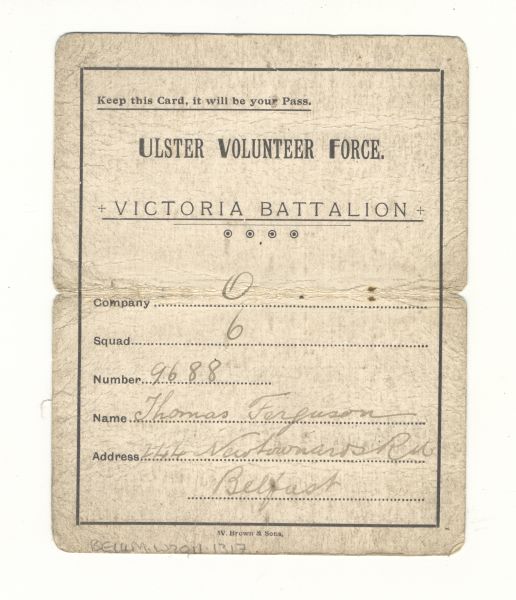 Keep this Card, it will be your Pass.
ULSTER VOLUNTEER FORCE.
VICTORIA BATTALION
Company O
Squad 6
Number 9688
Name Thomas Ferguson
Address 244 Newtownards Rd
Belfast
W. Brown & Sons,